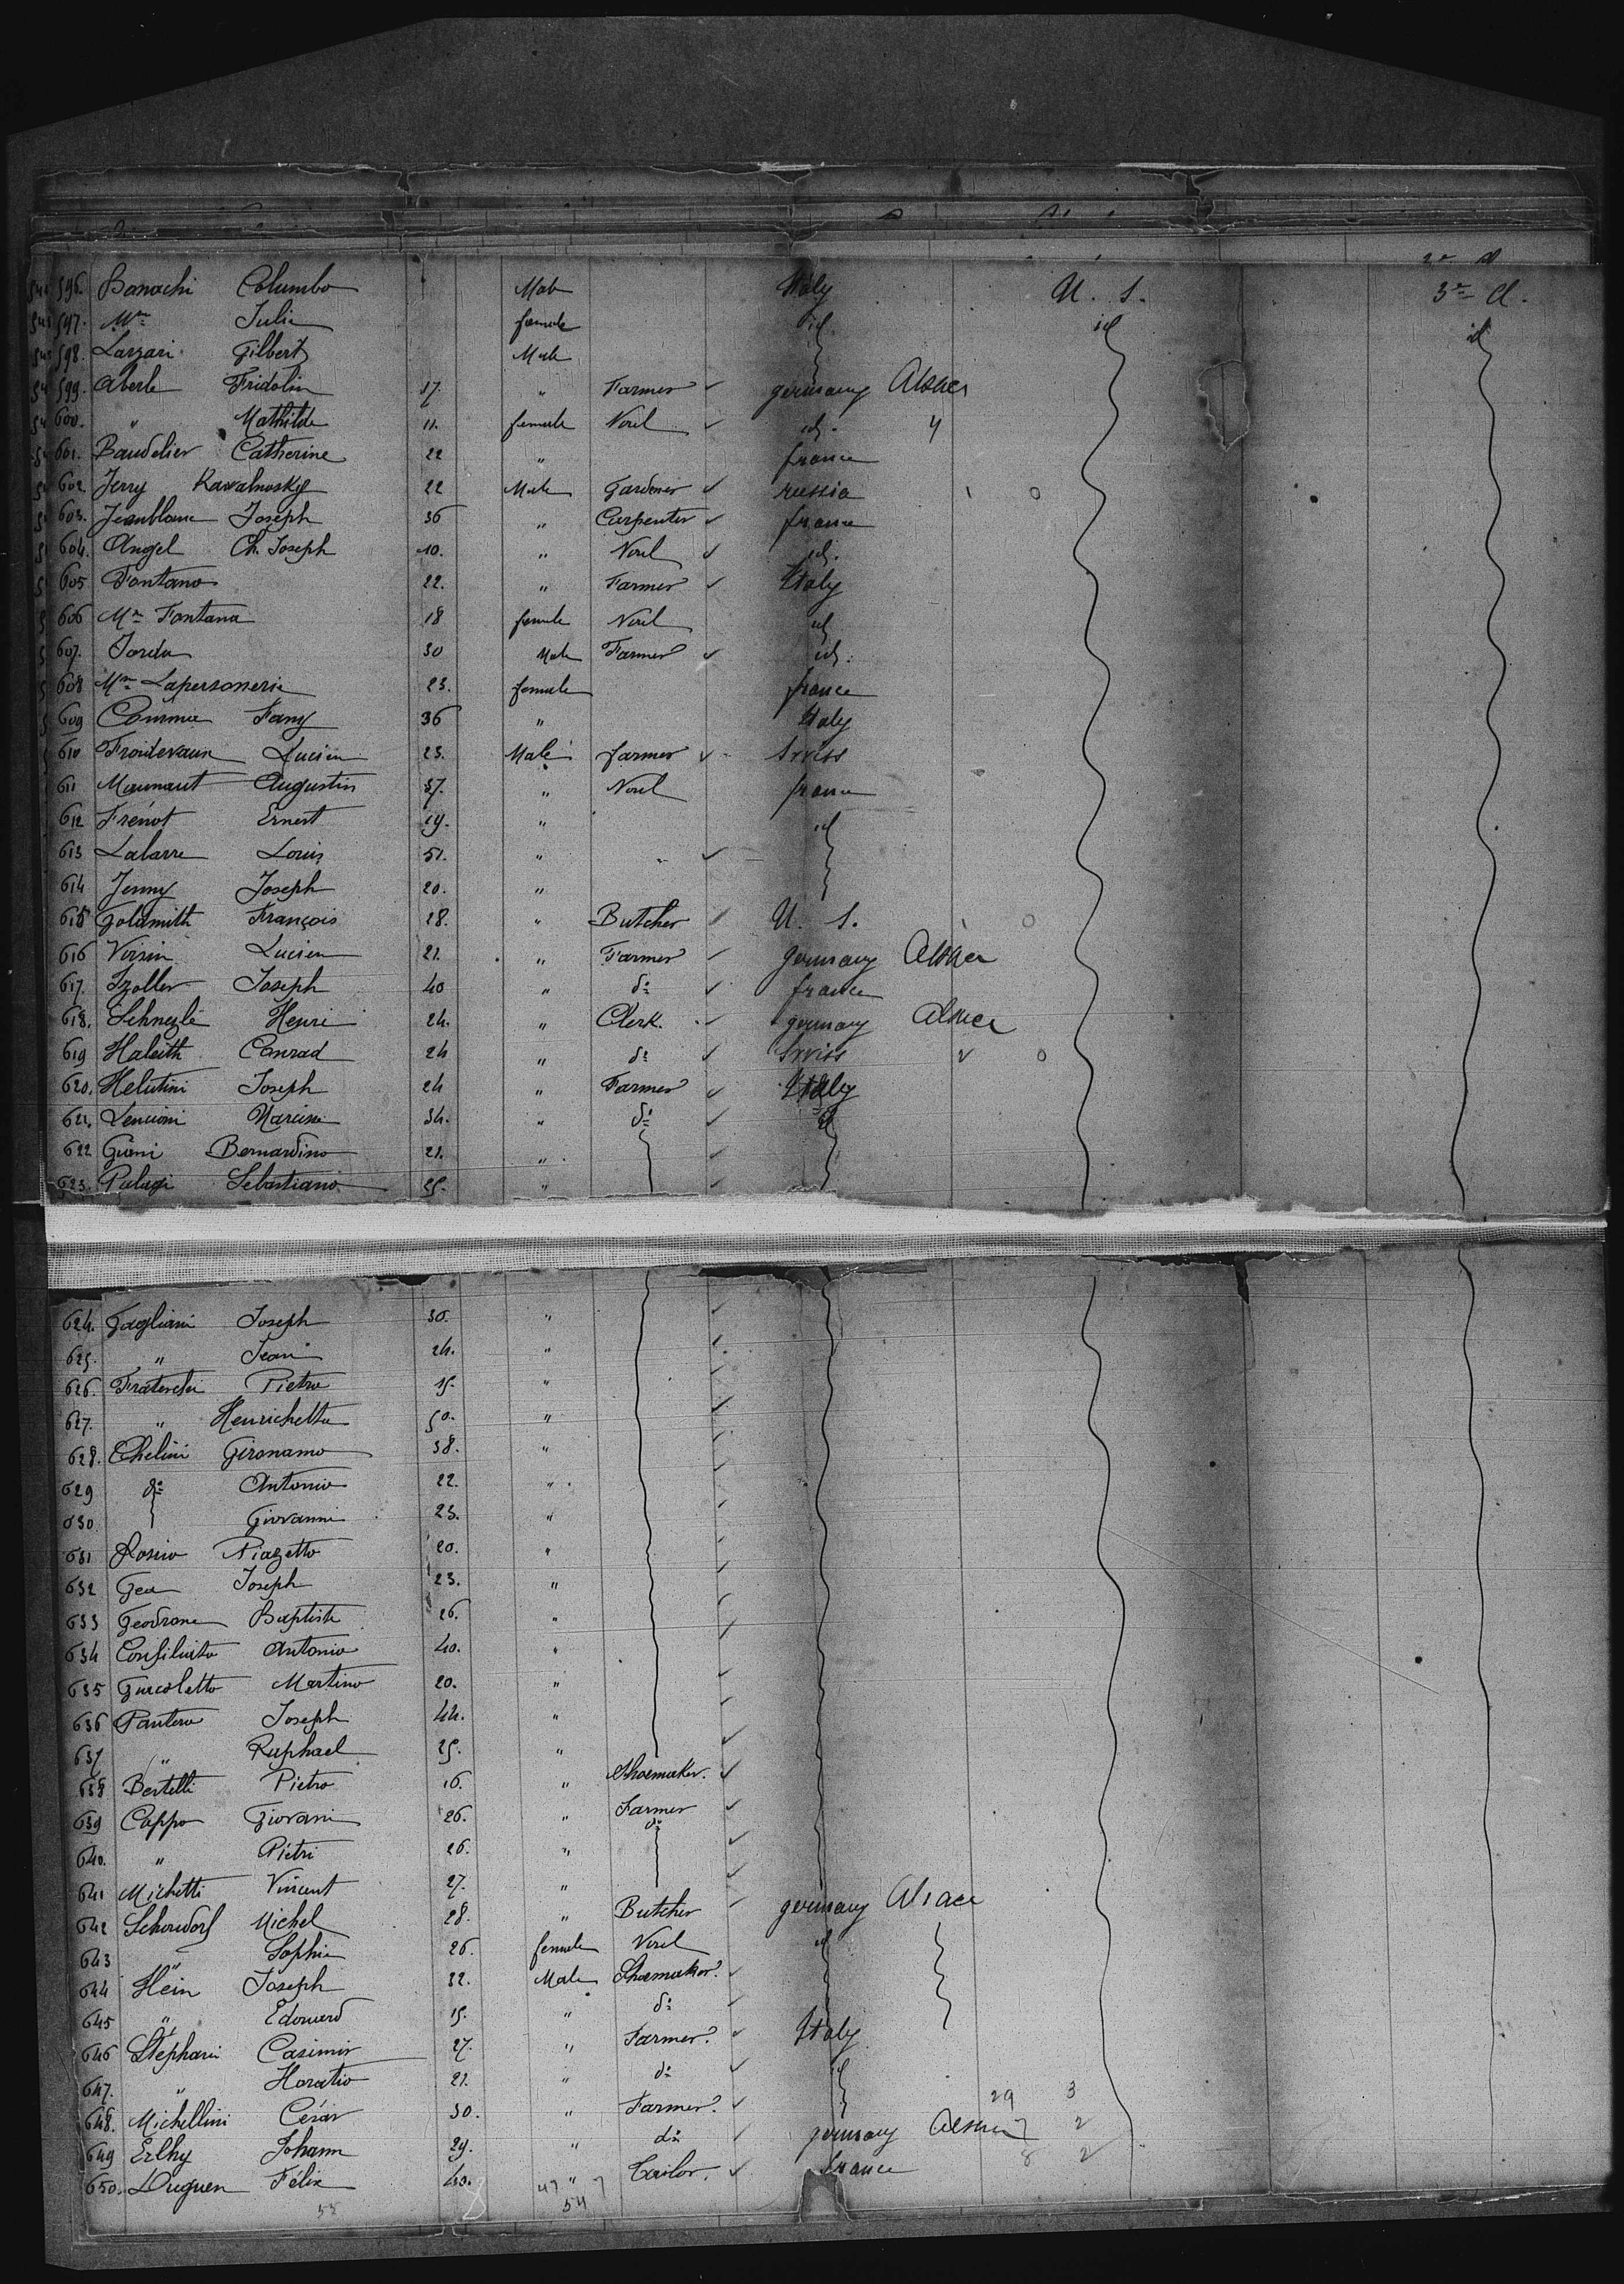 596. Banachi Columbo Male Italy U. S. 3e Cl.
597. Me Julie female id. id id
598. Lazzari Gilbert Male
599. Aberle Fridolin 17. " Farmer germany Alsace
600. " Mathilde 11. female Nonl id. 4
601. Baudelier Catherine 22 " france
602 Jerry Kawalnosky 22 Male Gardener russia 0
603. Jeanblanc Joseph 36 " Carpenter france
604. Angel Ch. Joseph 10. " Nonl id.
605 Fontano 22. " Farmer Italy
606 Me Fontana 18 female Nonl id
607. Jorda 30 Male Farmer id.
608 Me Lapersonerie 23. female france
609 Comma Fany 36 " Italy
610 Froidevaux Lucien 23. Male farmer Swiss
611 Maunaut Augustin 37. " Nonl france
612 Frénot Ernest 19. " id
613 Labarre Louis 51. "
614 Jenny Joseph 20. "
615 Goldsmith François 28. " Butcher U. S. 0
616 Voisin Lucien 21. " Farmer germany Alsace
617. Izoller Joseph 40 " do france
618. Schnezlé Henri 24. " Clerk. germany Alsace
619 Haleith Conrad 24 " do Swiss 0
620. Helutini Joseph 24 " Farmer Italy
621. Lencioni Narciso 34. " do id
622 Giani Bernardino 21. "
623. Pulagi Sebastiano 25. "
624. Gagliani Joseph 30. "
625. " Jean 24. "
626. Frateschi Pietro 15. "
627. " Henrichetta 50. "
628. Chelini Geronamo 38. "
629 do Antonio 22. "
630. Giovanni 23. "
631 Rosino Piazetto 20. "
632 Gea Joseph 23. "
633 Geodrone Baptiste 26. "
634 Consiluito Antonio 40. "
635 Guicoletto Martino 20. "
636 Pantera Joseph 44. "
637 " Raphael 25. "
638 Bertelli Pietro 16. " Shoemaker.
639 Cappo Giovani 26. " Farmer
640. " Pietri 26. " do
641 Michetti Vincent 27. "
642 Schoudorf Michel 28. " Butcher germany Alsace
643 " Sophie 26. female Nonl id
644 Hein Joseph 32. Male Shoemaker.
645 " Edouard 15. " do
646 Stephani Casimir 27. " Farmer. Italy
647. " Horatio 21. " do id
648. Michellini César 30. " Farmer. 29 3
649 Erlhy Johann 29. " do germany Alsace 7 2
650. Duguen Félix 40. " Tailor. france 8 2
47 7
54